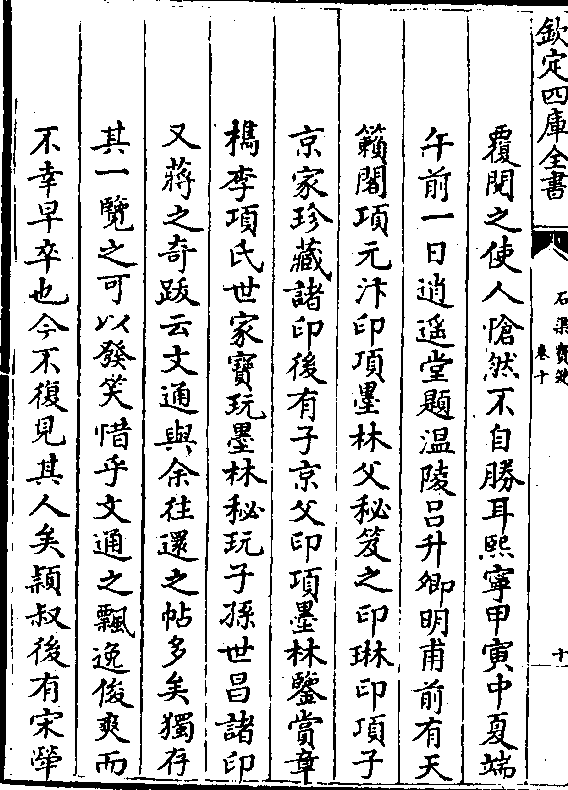 欽定四庫全書
石渠寳笈
卷十
十
覆閲之使人愴然不自勝耳熙寧甲寅中夏端
午前一日逍遥堂題温陵吕升卿明甫前有天
籟閣項元汴印項墨林父秘笈之印琳印項子
京家珍藏諸印後有子京父印項墨林鑒賞章
檇李項氏世家寳玩墨林秘玩子孫世昌諸印
又蔣之奇跋云文通與余往還之帖多矣獨存
其一覽之可以發笑惜乎文通之飄逸俊爽而
不幸早卒也今不復見其人矣頴叔後有宋犖